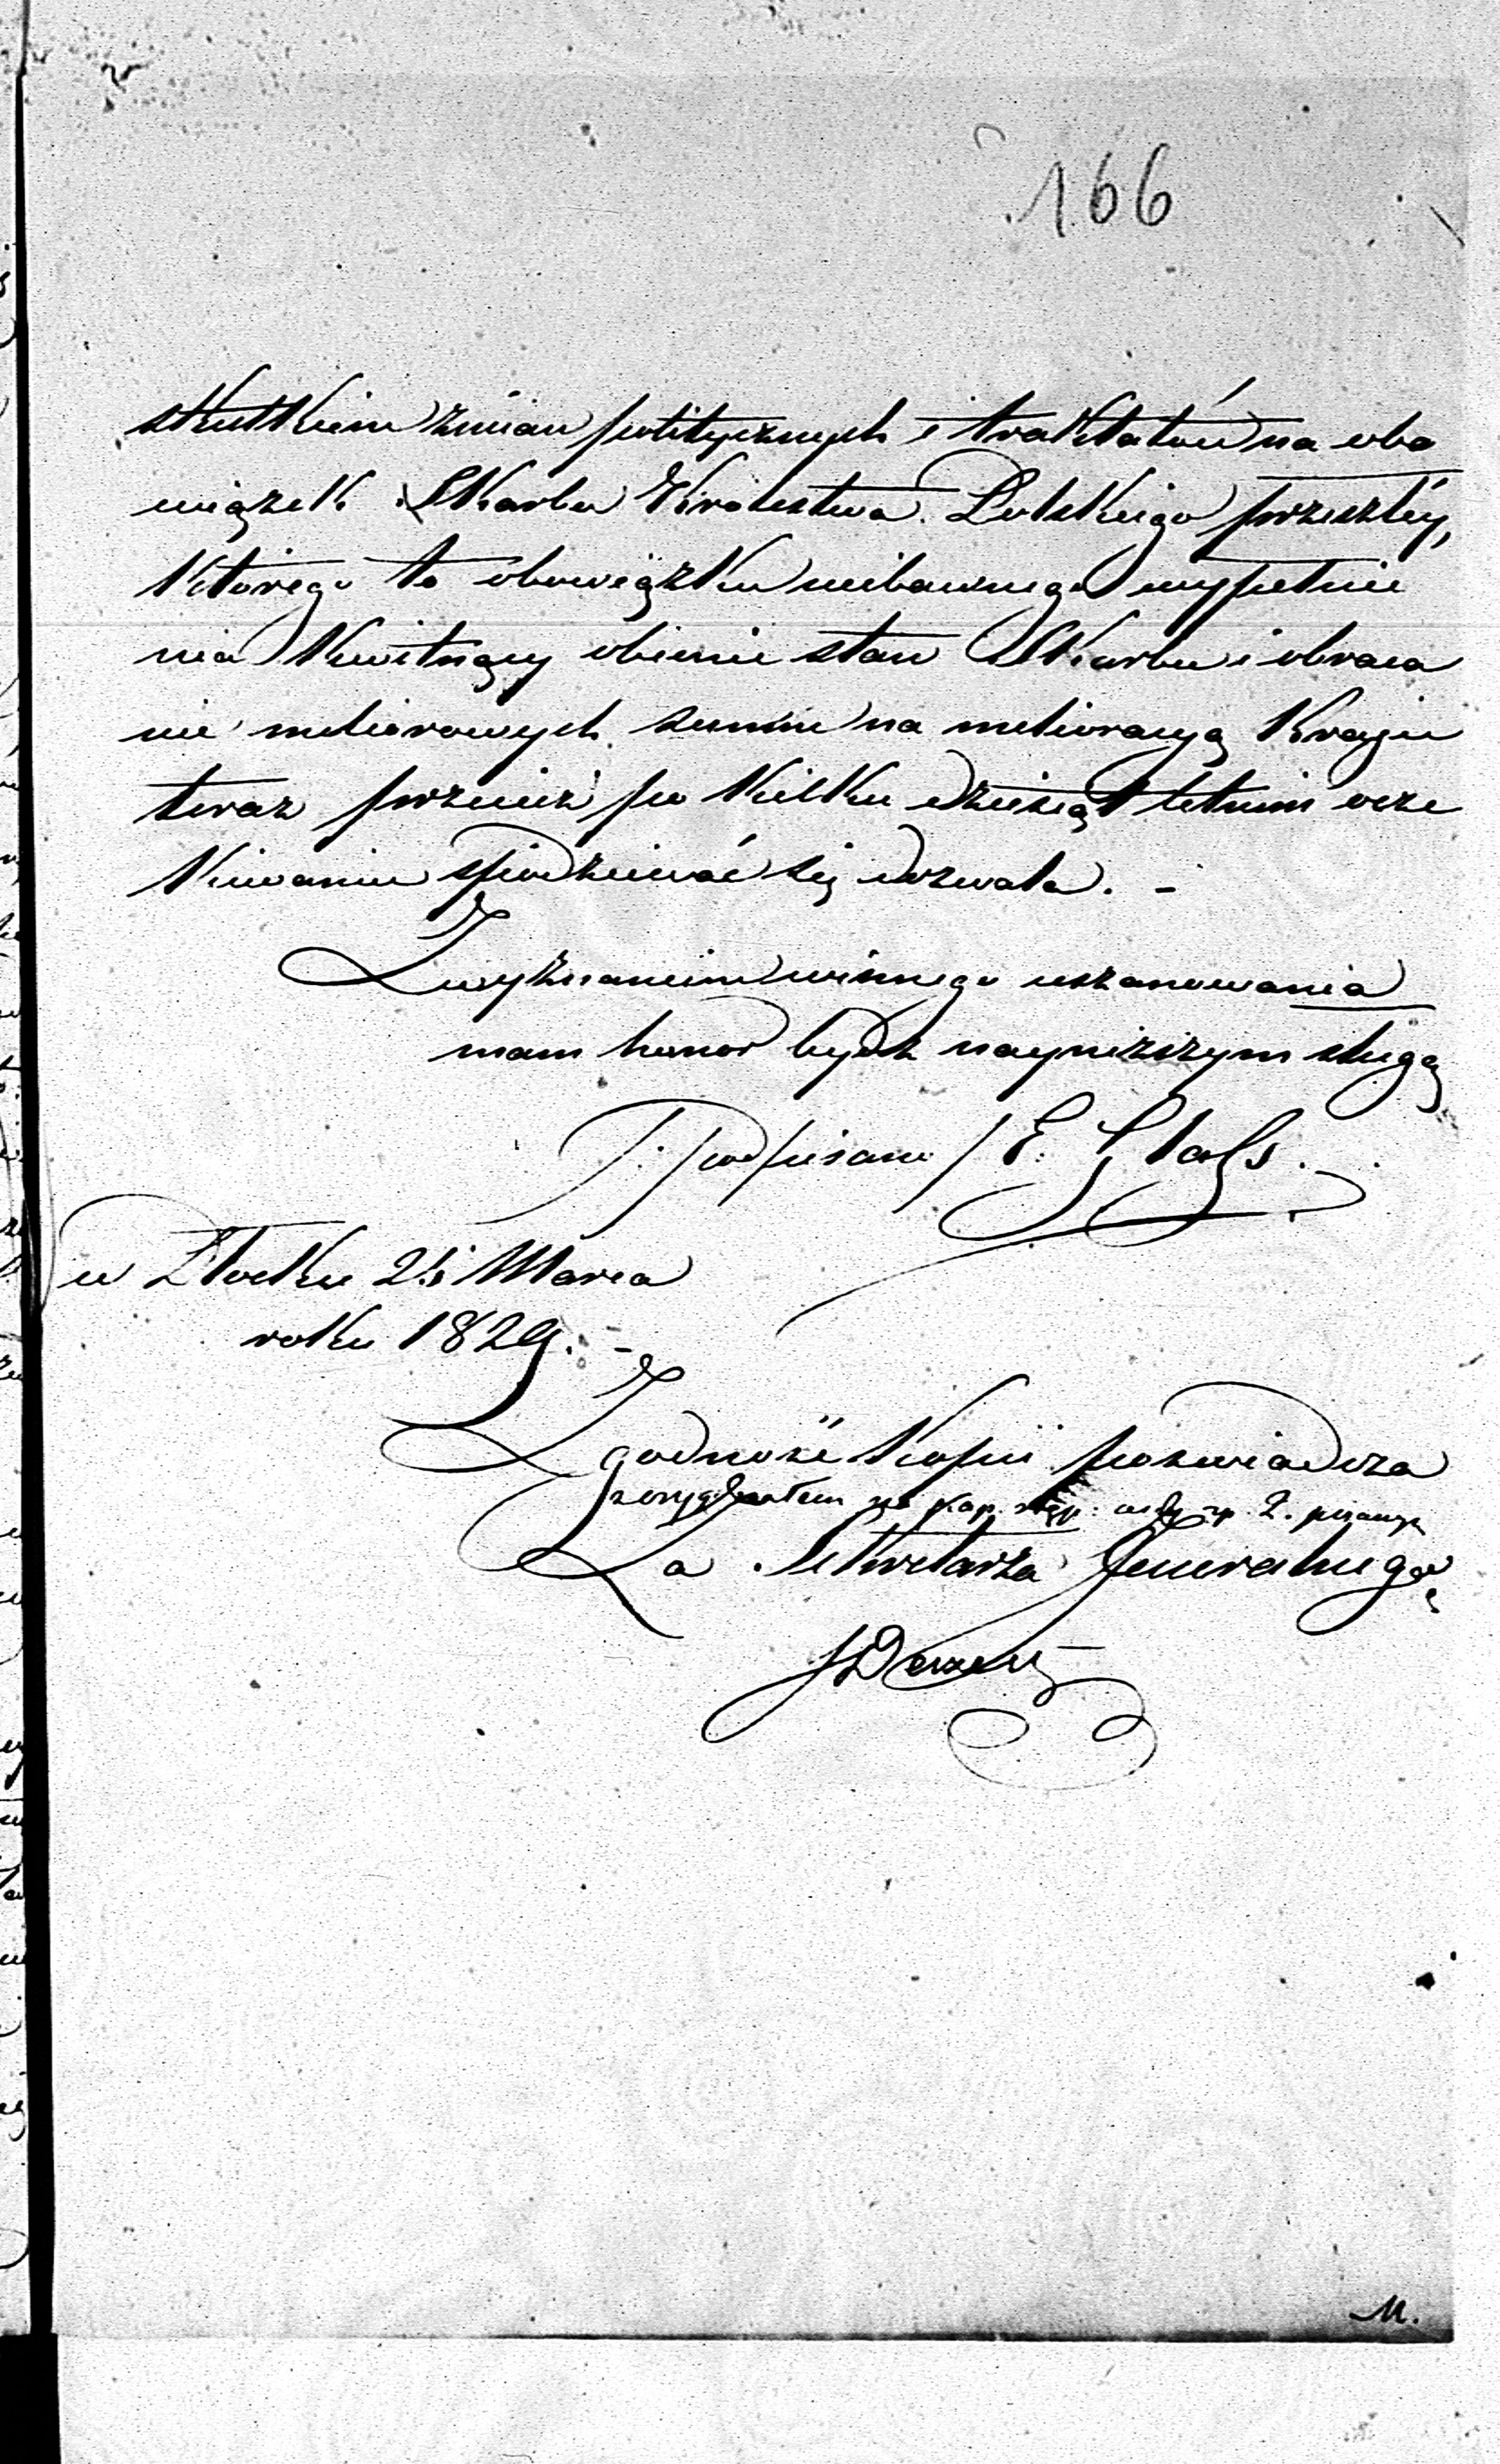 166
skutkiem zmian politycznych i traktatów na obo
wiązek Skarbu Królestwa Polskiego przeszłéy,
którego to obowiązku niebawnego wypełnie
nia kwitnący obecnie stan Skarbu i obraca
nie milionowych summ na melioracyą Kraju
teraz przecież po kilku dziesiąt letnim ocze
kiwaniu spodziewać się dozwala. -
Z wyznaniem winnego uszanowania
mam honor bydź nayniższym sługą
/: podpisano / E.
w Płocku 24 Marca
roku 1829. -
Zgodność Kopii poswiadcza
z oryginałem na pap. stęp. 2. pisanym
Za Sekretarza Jeneralnego
M.